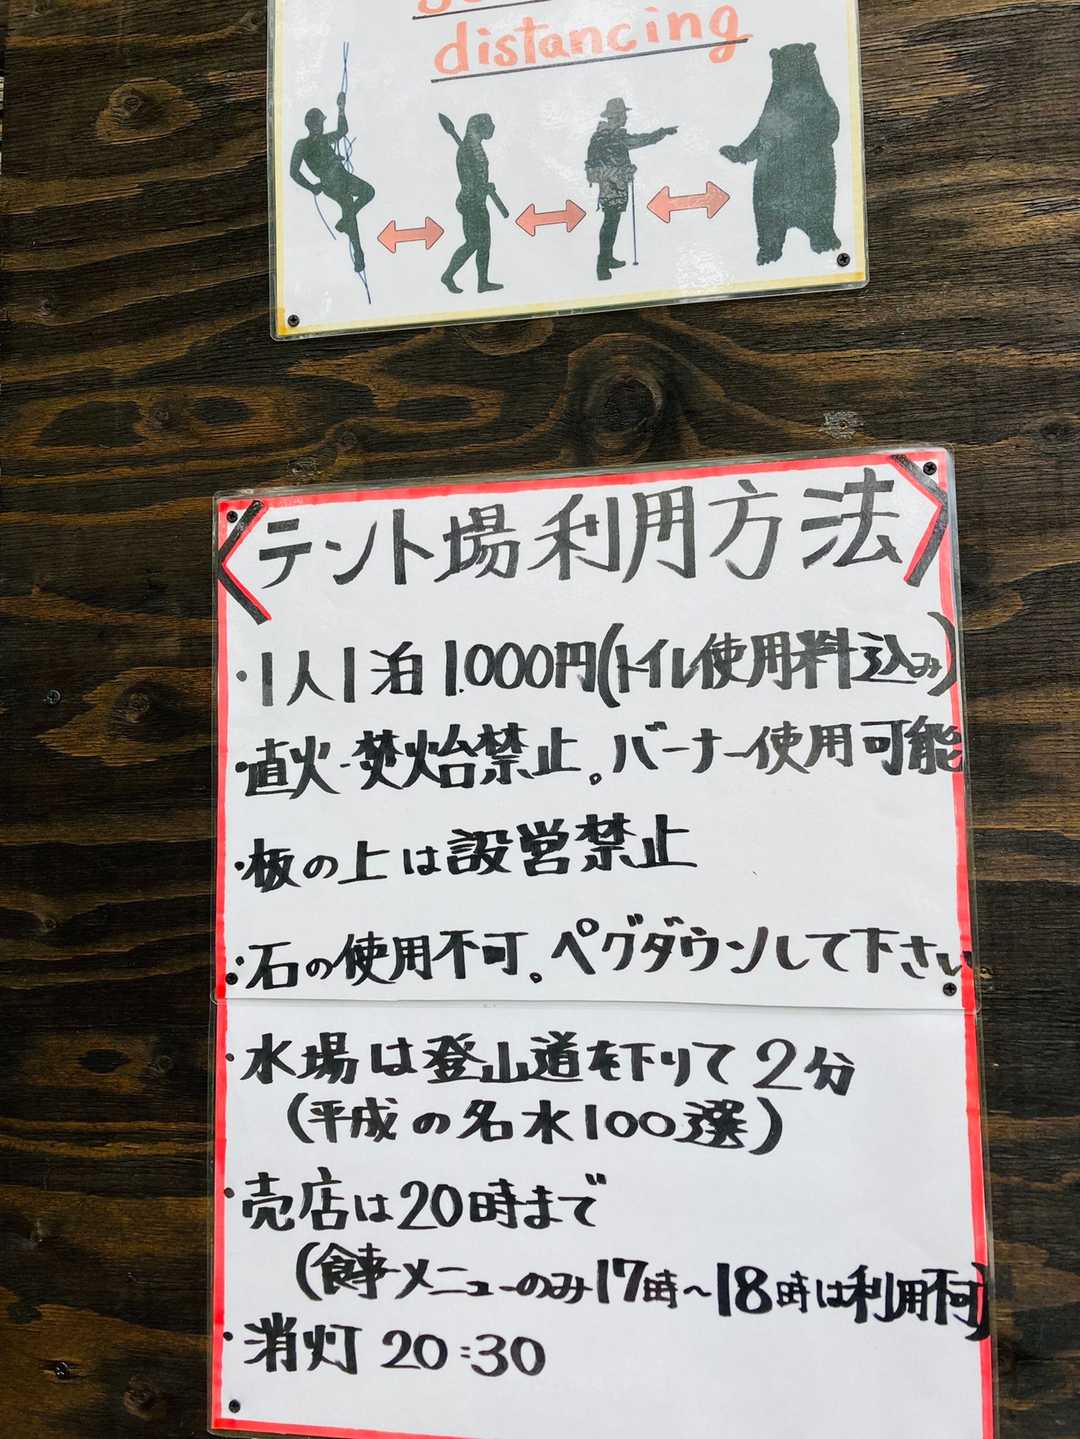 distancing
〈テント場利用方法〉
・1人1泊1.000円(トイレ使用料込み)
・直火・焚火台禁止。バーナー使用可能
・板の上は設営禁止
・石の使用不可。ペグダウンして下さい。
・水場は登山道を下りて2分
(平成の名水100選)
・売店は20時まで
(食事メニューのみ17時~18時は利用不可)
・消灯 20:30